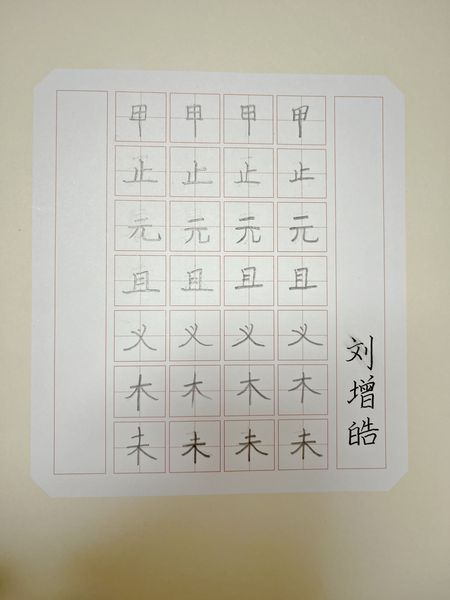 甲甲甲甲
止止止止
元元元元
且且且且
义义义义
木木木木
未未未未
刘增皓